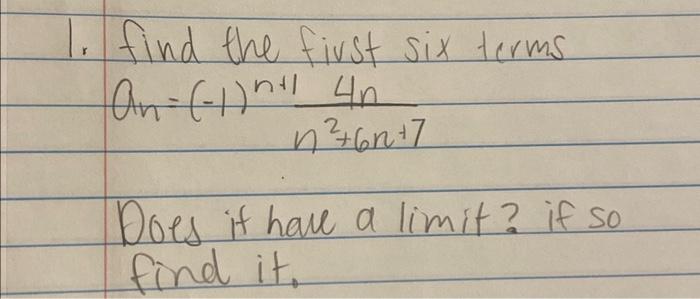 1. find the first six terms
an = (-1)^n+1 4n / n²+6n+7
Does it have a limit? if so
find it.